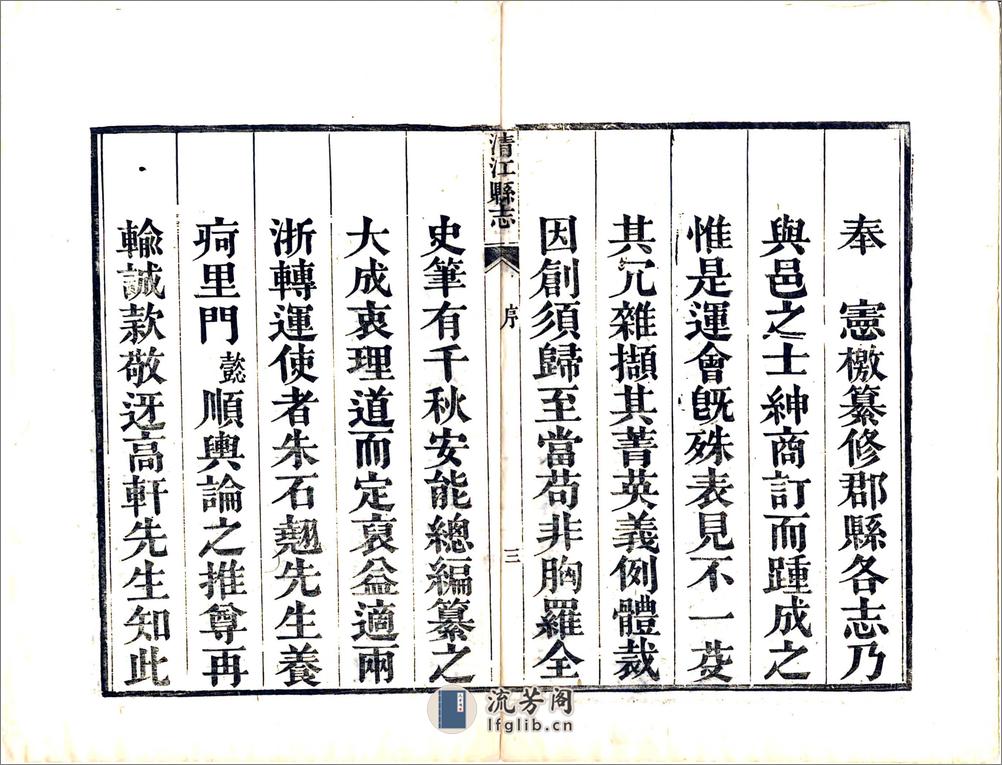 奉　憲檄纂修郡縣各志乃
與邑之士紳商訂而踵成之
惟是運會旣殊表見不一芟
其冗雜擷其菁英義例體裁
因創須歸至當苟非胸羅全
清江縣志
序
三
史筆有千秋安能總編纂之
大成衷理道而定裒益適兩
浙轉運使者朱石翹先生養
疴里門懿順輿論之推尊再
輸誠款敬迓高軒先生知此
流芳阁
lfglib.cn